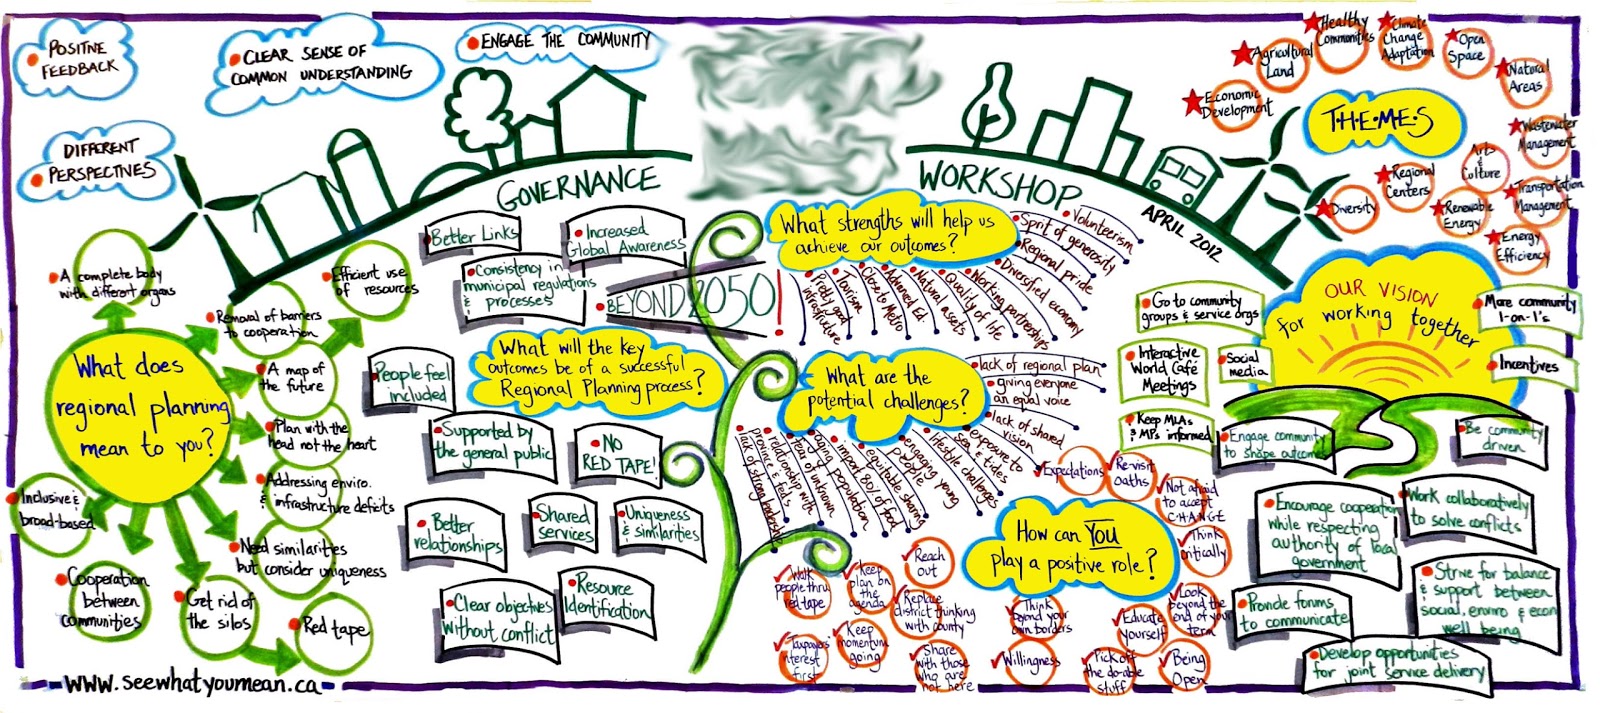 POSITIVE
FEEDBACK
CLEAR SENSE OF
COMMON UNDERSTANDING
ENGAGE THE COMMUNITY
DIFFERENT
PERSPECTIVES
GOVERNANCE
WORKSHOP
APRIL 2012
T·H·E·M·E·S
Economic
Development
Agricultural
Land
Healthy
Communities
Climate
Change
Adaptation
Open
Space
Natural
Areas
Wastewater
Management
Arts
&
Culture
Regional
Centers
Diversity
Renewable
Energy
Transportation
Management
Energy
Efficiency
What does
regional planning
mean to you?
A complete body
with different organs
Efficient use
of resources
Removal of barriers
to cooperation
A map of
the future
Plan with the
head not the heart
Addressing enviro.
& infrastructure deficits
Need similarities
but consider uniqueness
Inclusive &
broad-based
Cooperation
between
communities
Get rid of
the silos
Red tape
www.seewhatyoumean.ca
Better Links
Increased
Global Awareness
Consistency in
municipal regulations
& processes
BEYOND 2050!
What will the key
outcomes be of a successful
Regional Planning process?
People feel
included
Supported by
the general public
NO
RED TAPE!
Better
relationships
Shared
services
Uniqueness
& similarities
Clear objectives
without conflict
Resource
Identification
What strengths will help us
achieve our outcomes?
Volunteerism
Sprit of generosity
Regional pride
Diversified economy
Working partnerships
Quality of life
Natural assets
Advanced Ed.
Close to Metro
Tourism
Pretty good
infrastructure
What are the
potential challenges?
lack of regional plan
giving everyone
an equal voice
lack of shared
vision
exposure to
sea & tides
lifestyle challenges
engaging young
people
equitable sharing
import 80% of food
aging population
fear of unknown
relationship with
province & fed's
lack of strong leadership
How can YOU
play a positive role?
Expectations
Re-visit
oaths
Not afraid
to accept
CHANGE
Think
critically
Look
beyond the
end of your
term
Being
Open
Educate
yourself
Pick off
the do-able
stuff
Think
beyond your
own borders
Willingness
Reach
out
Replace
district thinking
with county
Share
with those
who are
not here
Keep
plan on
the agenda
Keep
momentum
going
Walk
people thru
red tape
Taxpayers
interest
first
OUR VISION
for working together
Go to community
groups & service orgs
Interactive
World Café
Meetings
Social
media
Keep MLAs
& MPs informed
More community
1-on-1's
Incentives
Engage community
to shape outcomes
Be community
driven
Encourage cooperation
while respecting
authority of local
government
Work collaboratively
to solve conflicts
Provide forums
to communicate
Strive for balance
& support between
social, enviro & econ
well being
Develop opportunities
for joint service delivery